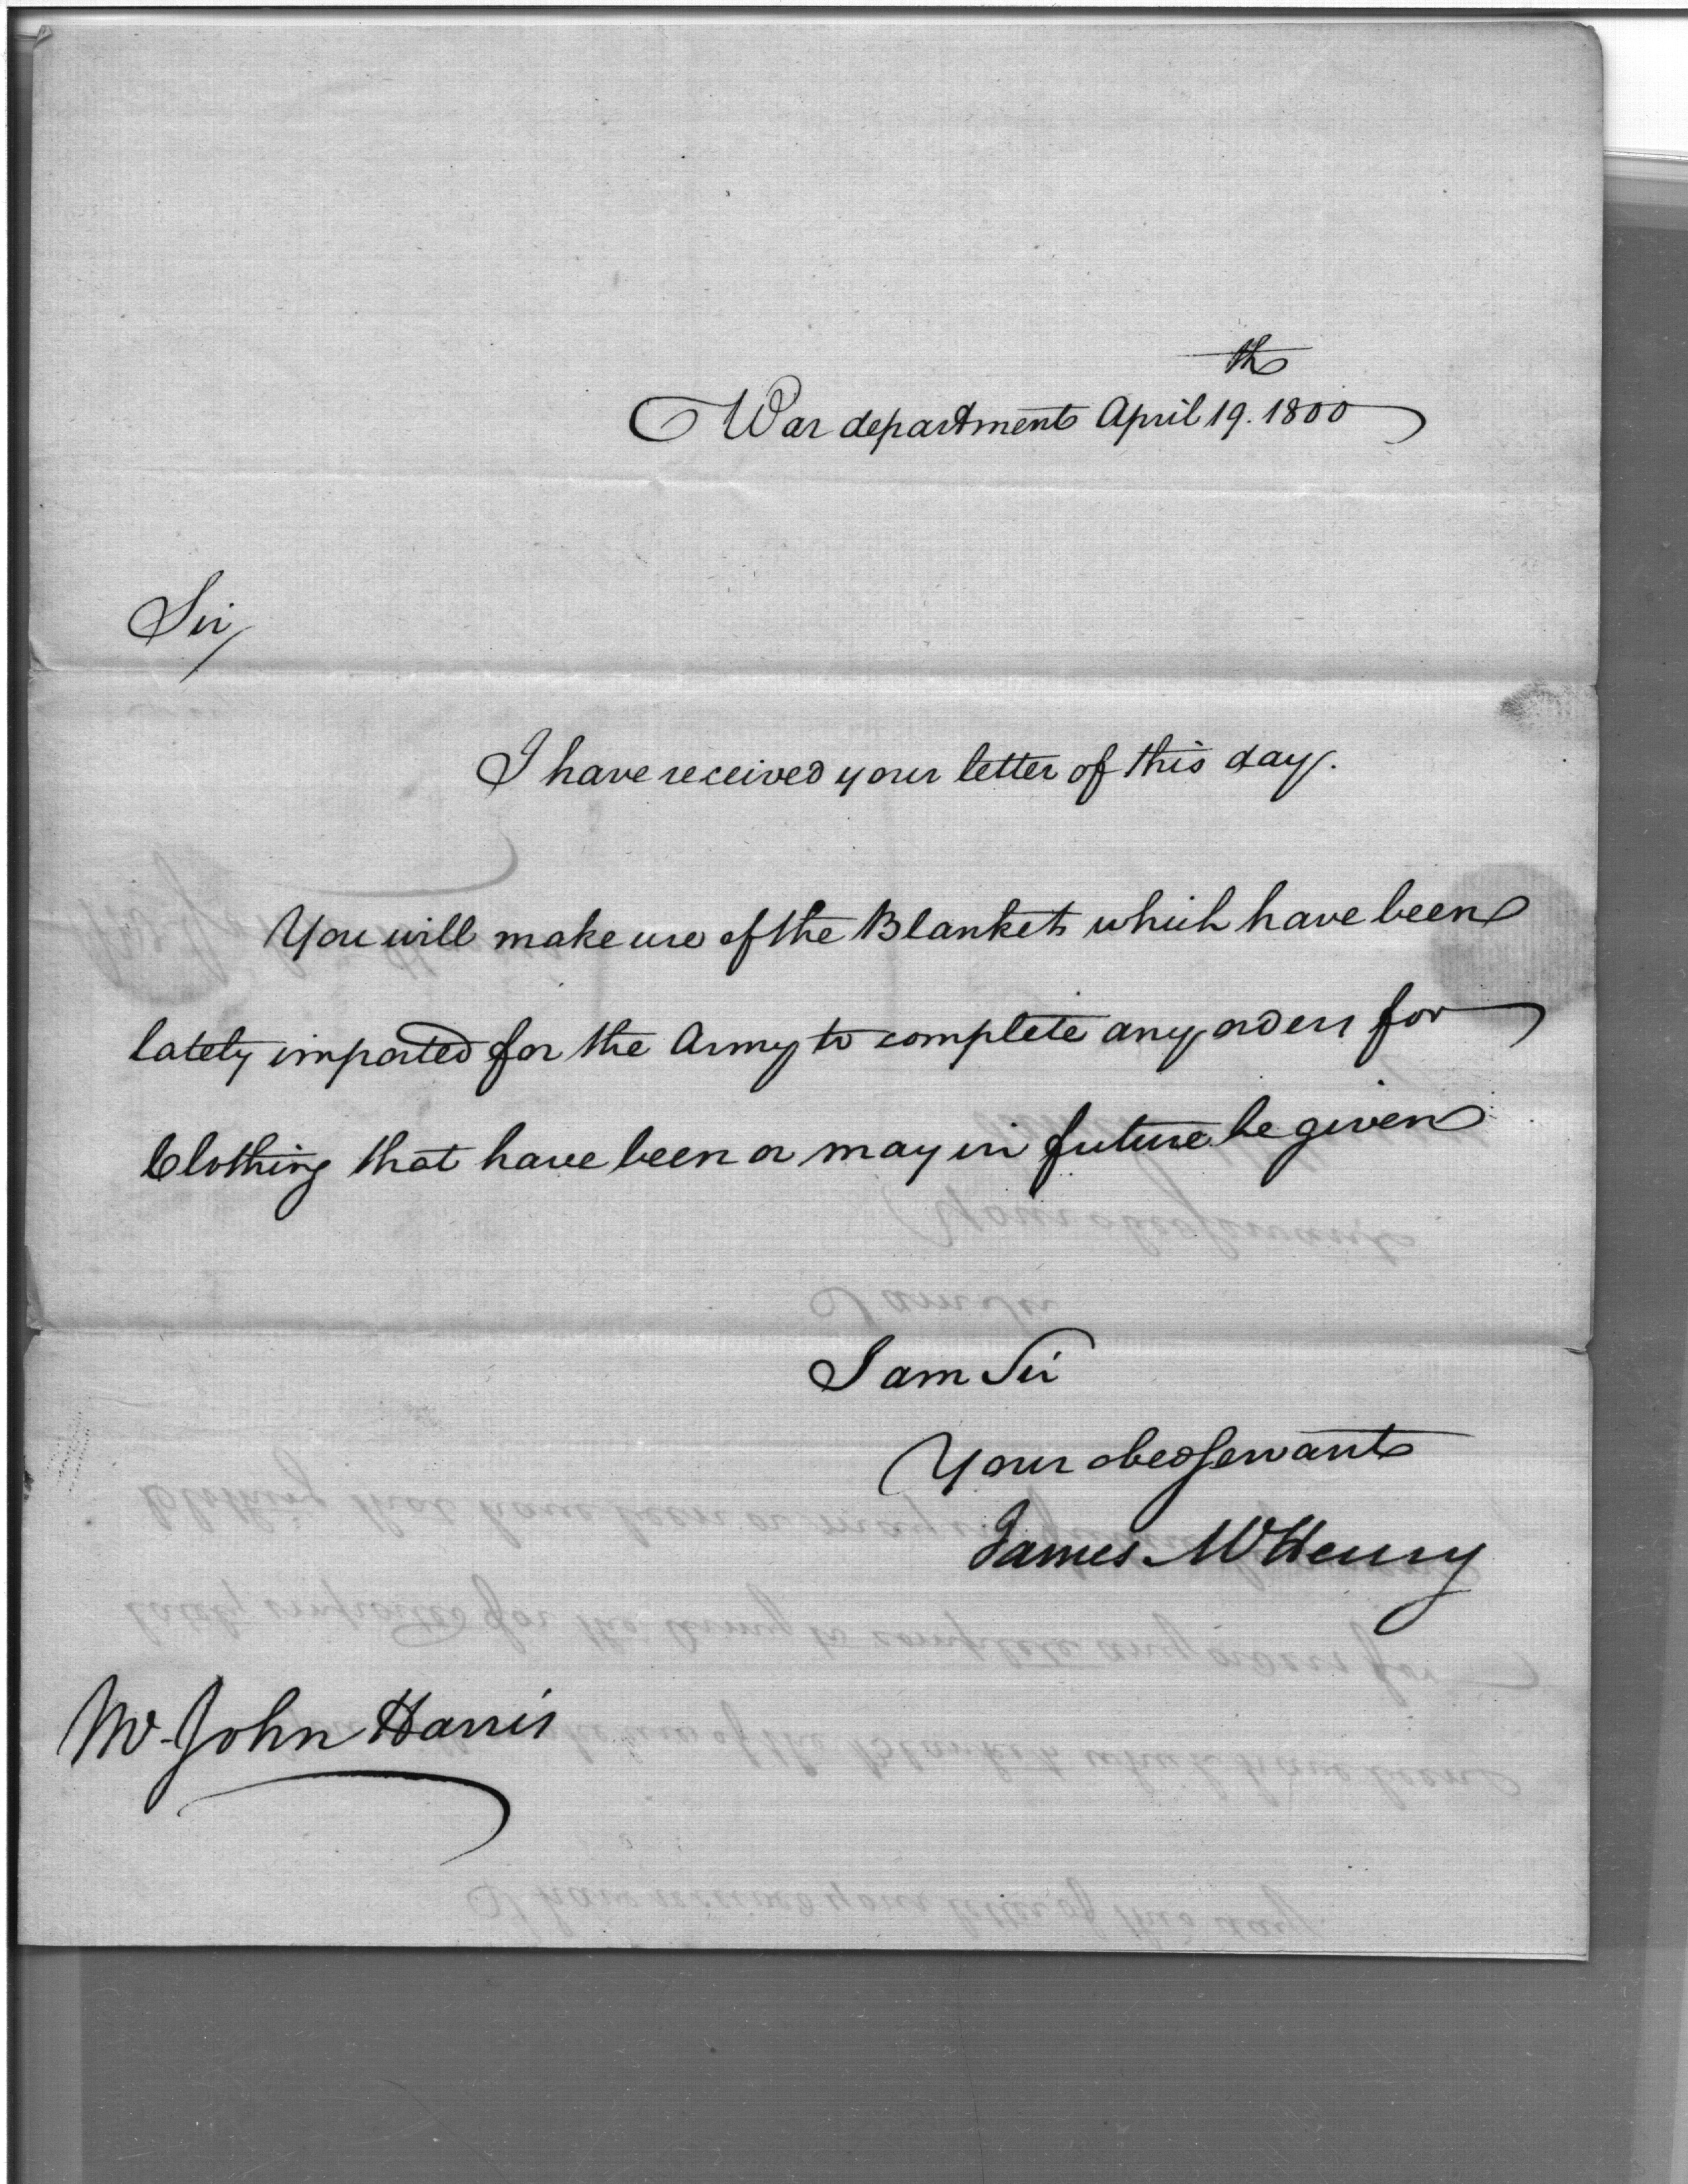 War department April 19.th 1800
Sir,
I have received your letter of this day.
You will make use of the Blankets which have been
lately imported for the Army to complete any orders for
Clothing that have been or may in future be given
I am Sir
Your obed Servant
James McHenry
Mr. John Harris